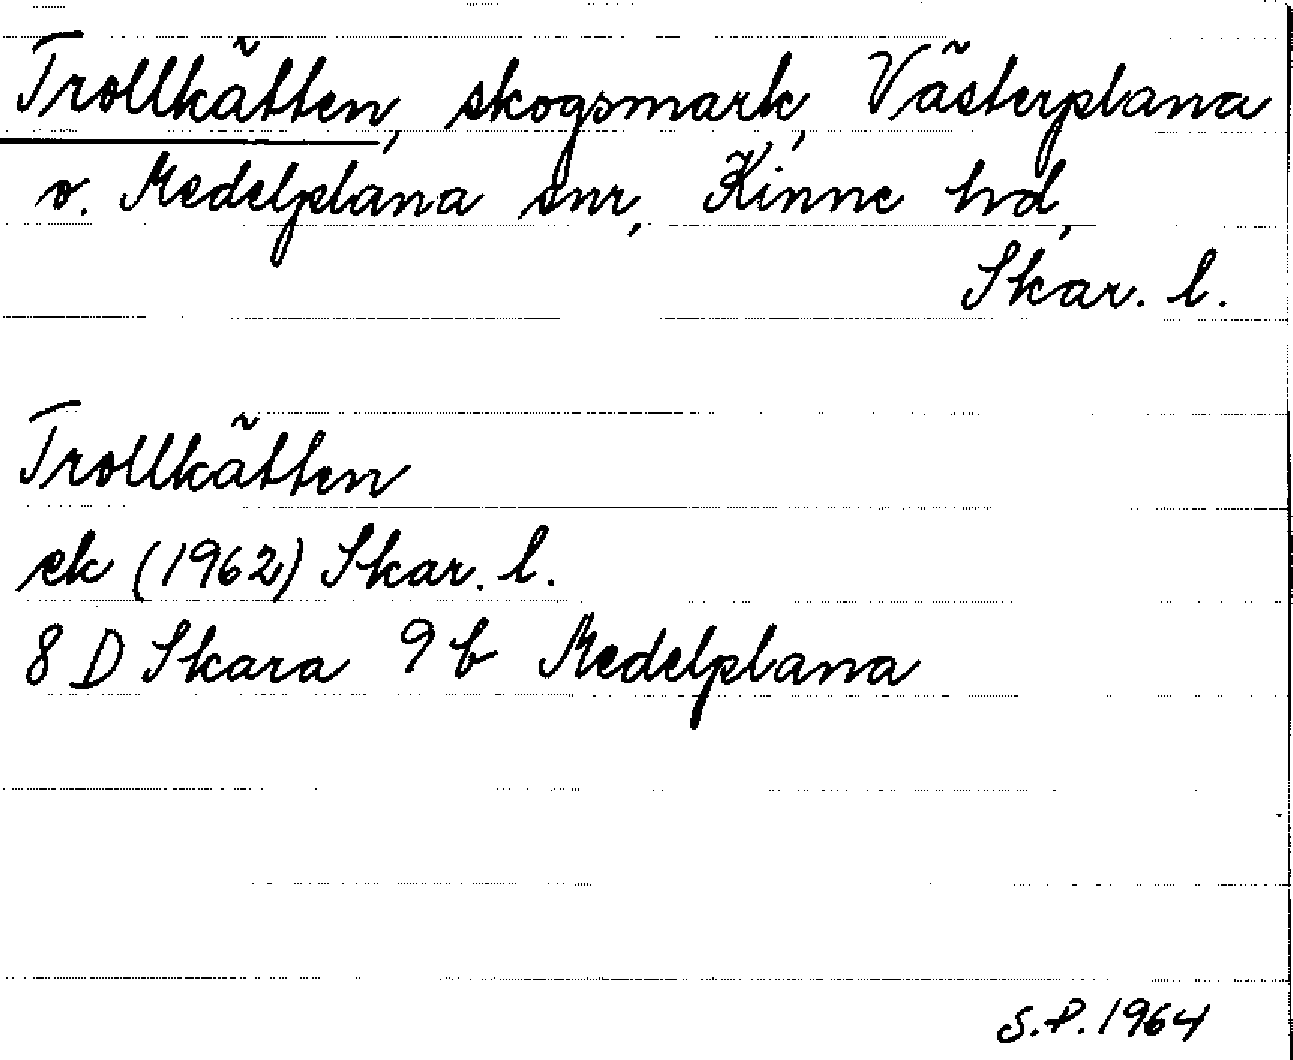 Trollkätten, skogsmark, Västerplana
o. Medelplana snr, Kinne hd,
Skar. l.
Trollkätten
ek (1962) Skar. l.
8 D Skara 9 b Medelplana
S.P. 1964